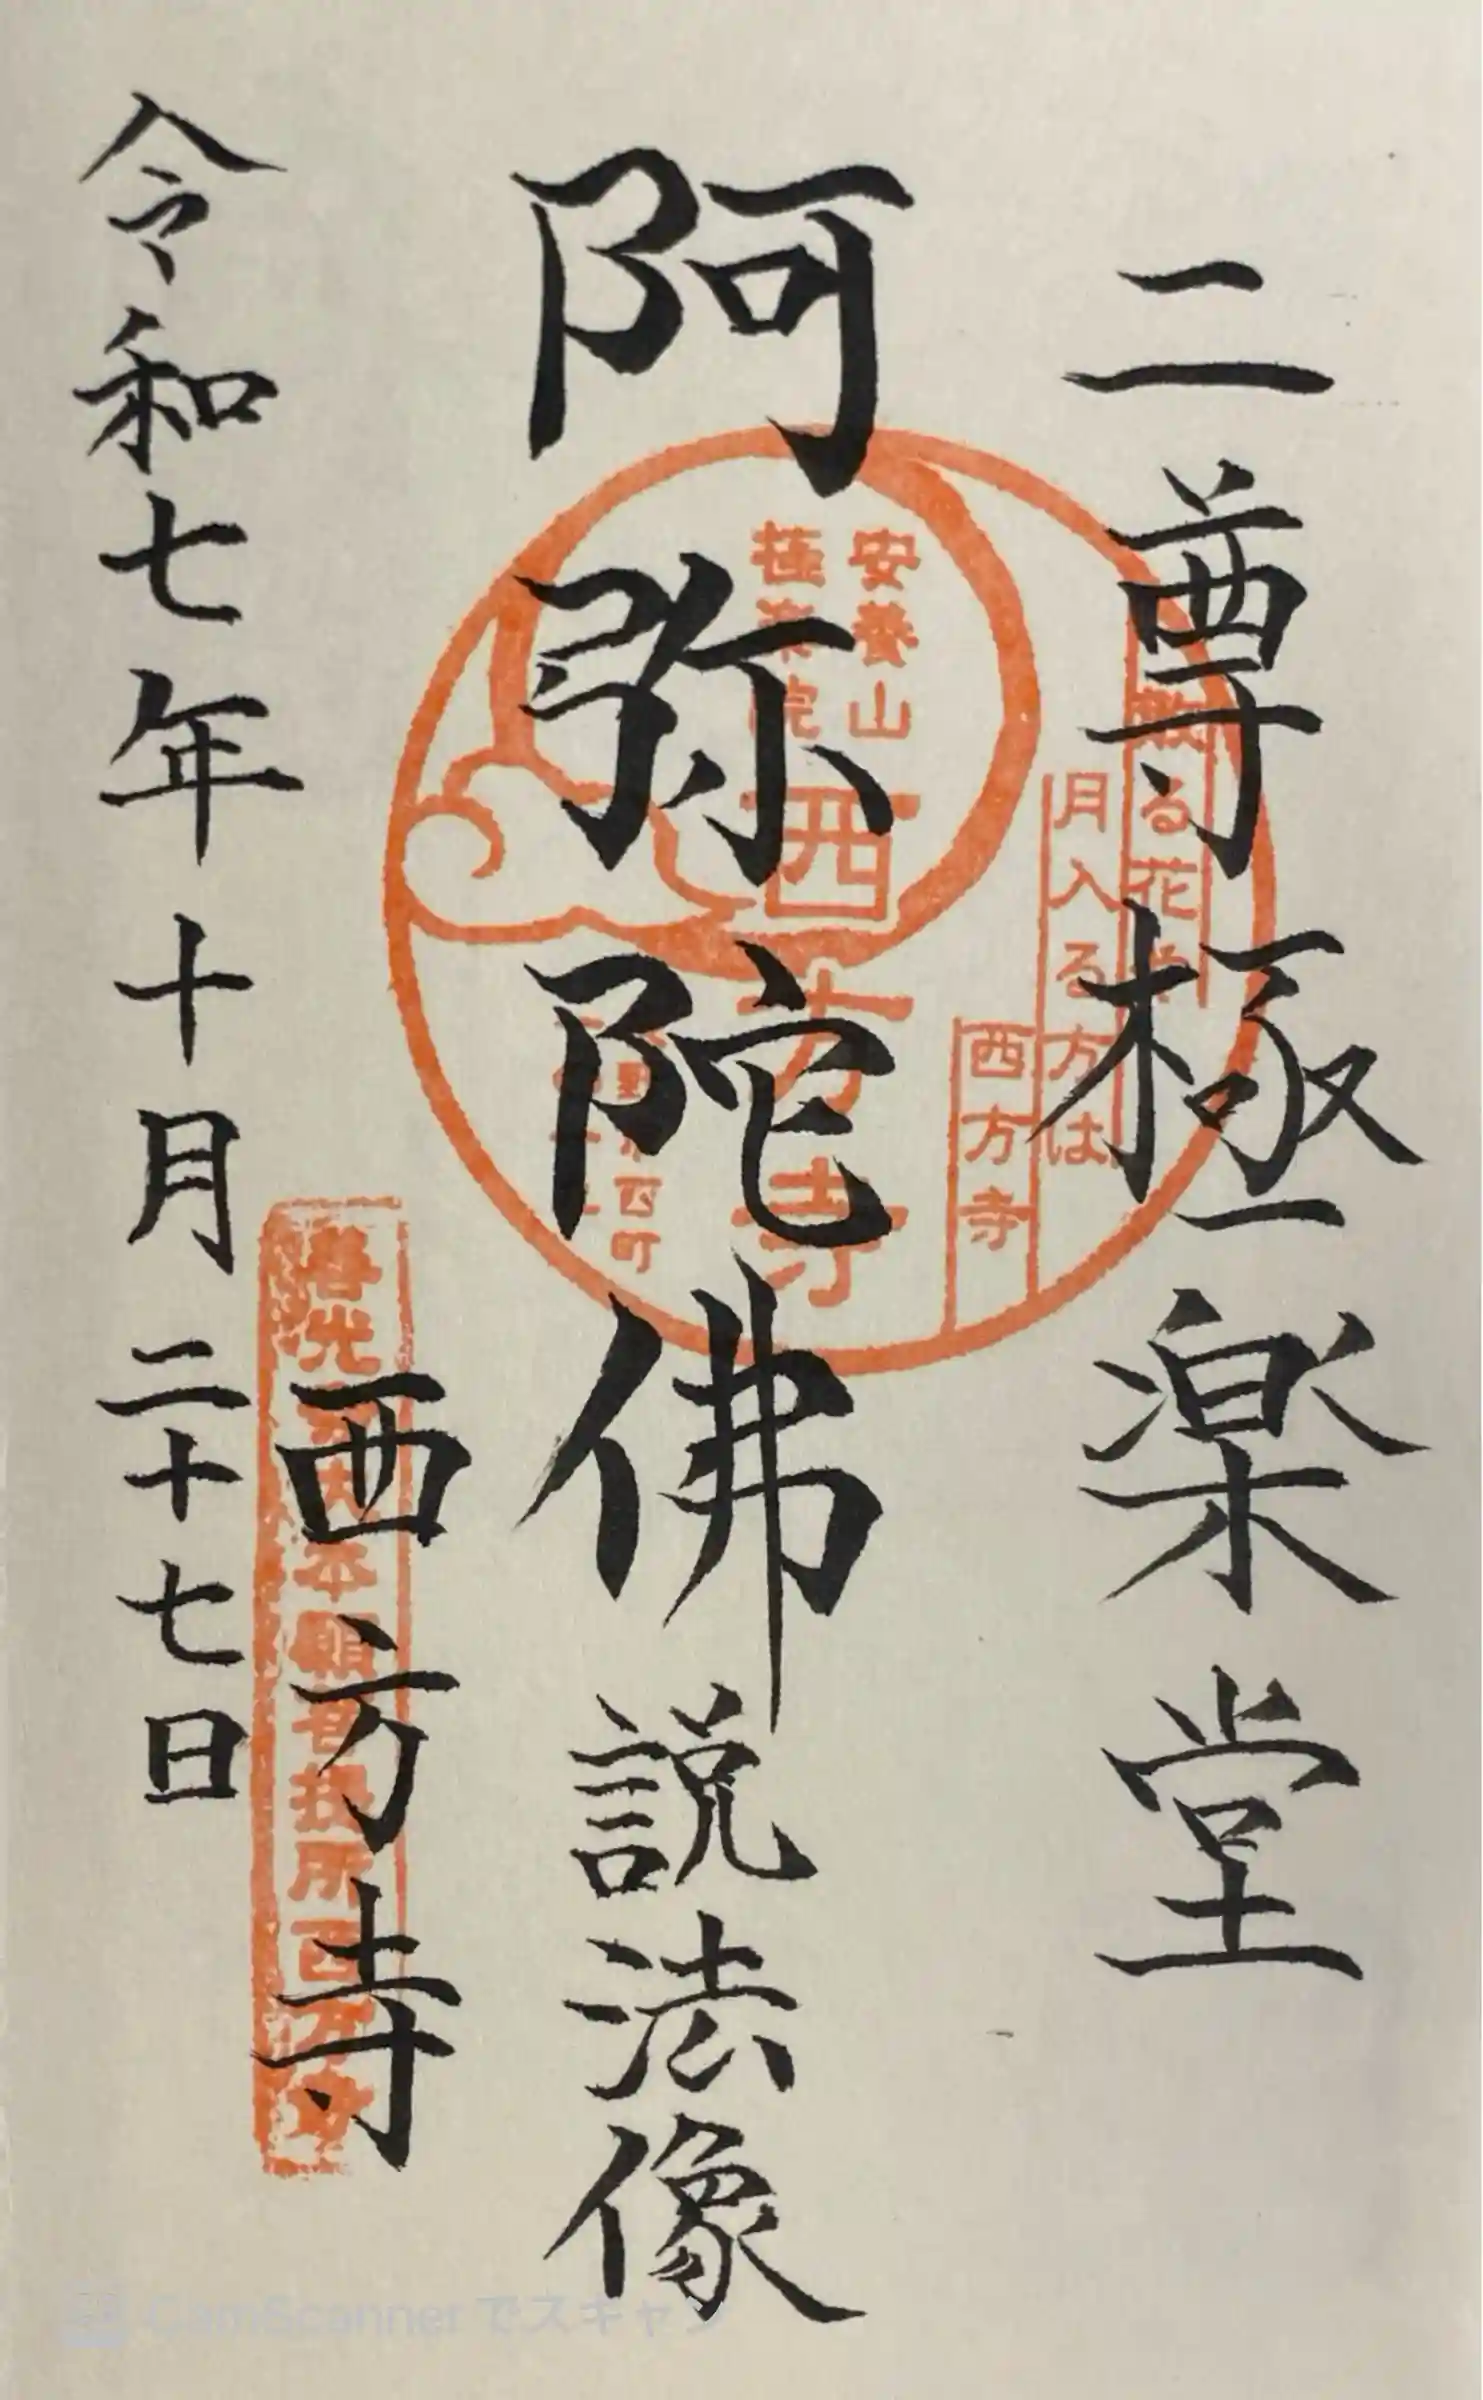 二尊極楽堂
阿弥陀佛説法像
西方寺
令和七年十月二十七日
散る花や
月入る方は
西方寺
安養山
極楽院
西方寺
CamScannerでスキャン